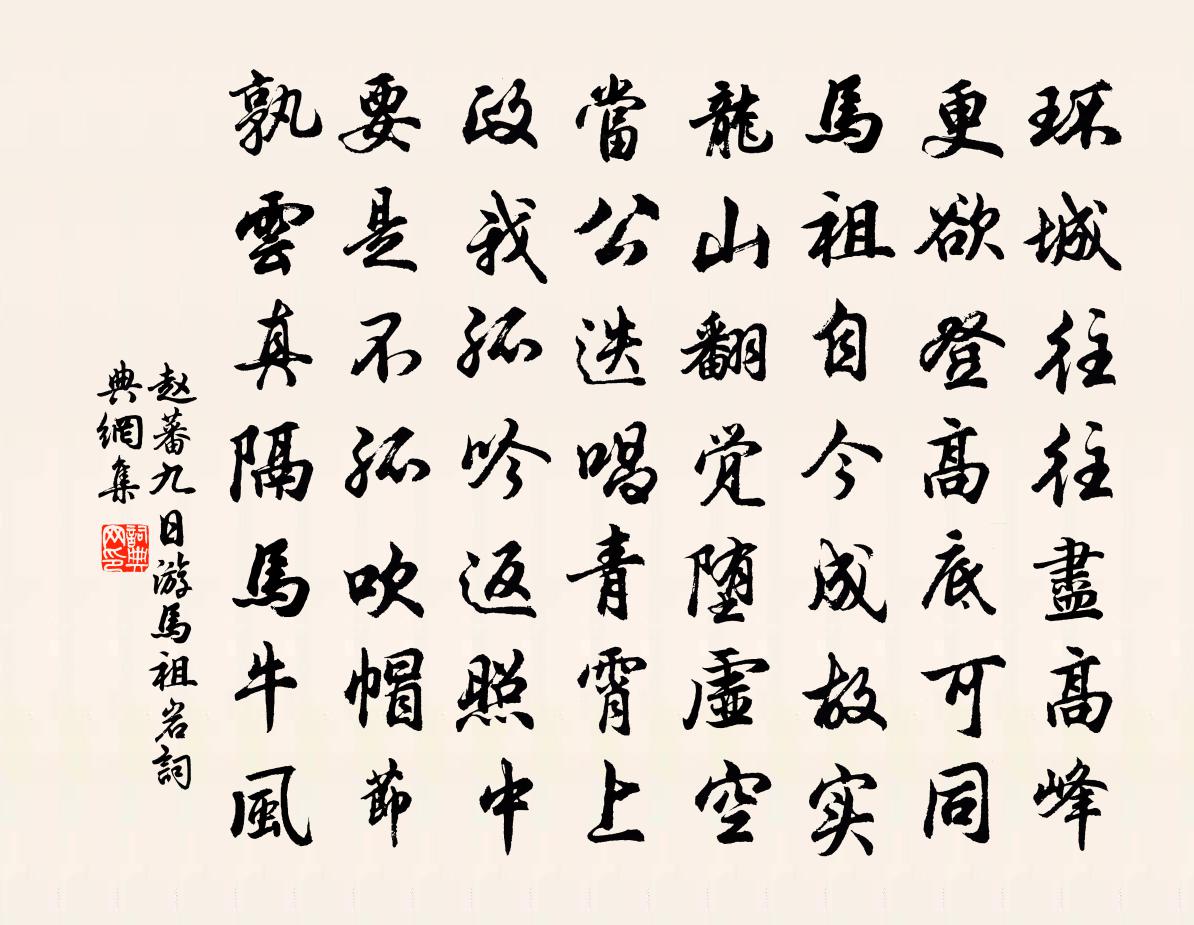 环城往往盡高峰
更欲登高底可同
馬祖自今成故实
龍山翻觉堕虛空
當公迭唱青霄上
政我孤吟返照中
要是不孤吹帽節
孰雲真隔馬牛風
赵蕃九日游馬祖岩詞
典網集
詞典
网印